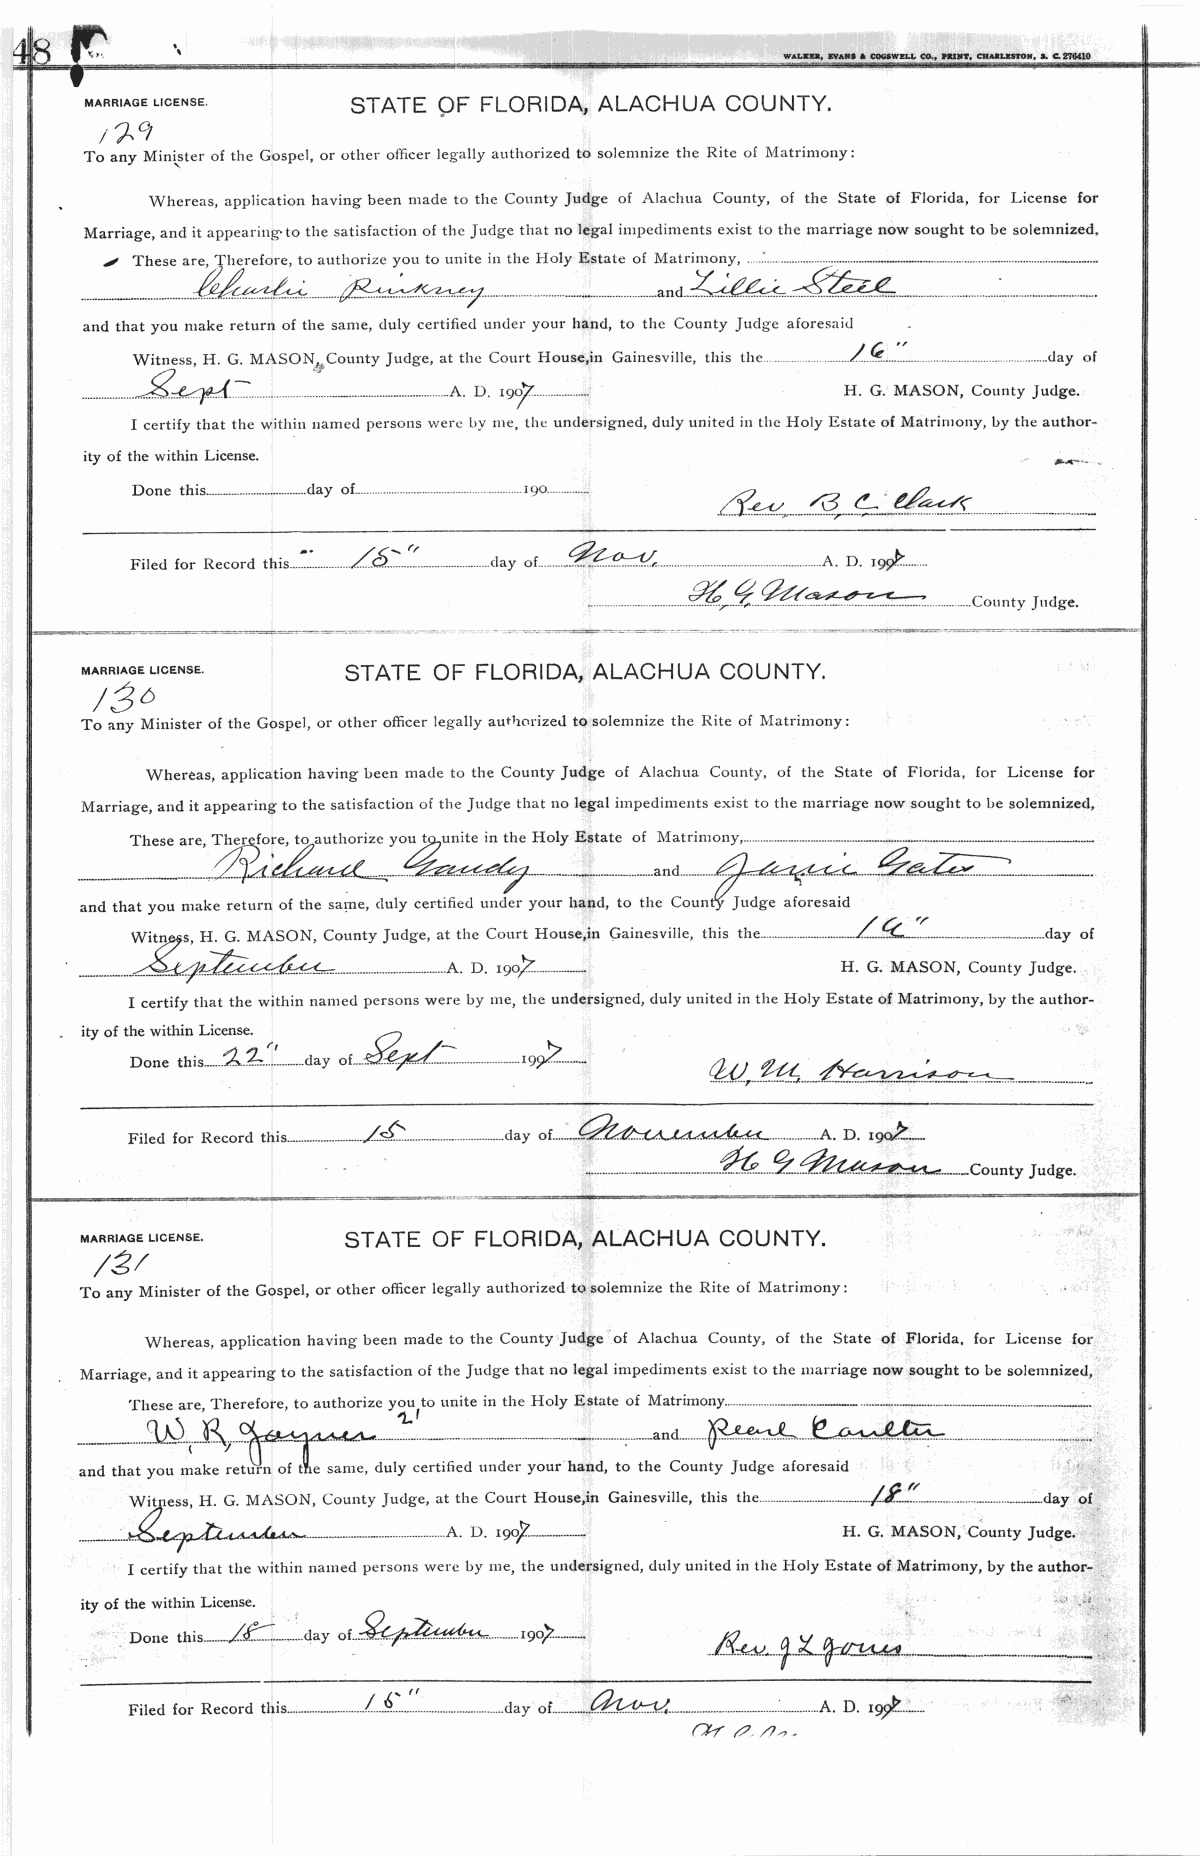 48
WALKER, EVANS & COGSWELL CO., PRINT, CHARLESTON, S. C. 276410
MARRIAGE LICENSE. STATE OF FLORIDA, ALACHUA COUNTY.
129
To any Minister of the Gospel, or other officer legally authorized to solemnize the Rite of Matrimony:
Whereas, application having been made to the County Judge of Alachua County, of the State of Florida, for License for
Marriage, and it appearing to the satisfaction of the Judge that no legal impediments exist to the marriage now sought to be solemnized,
These are, Therefore, to authorize you to unite in the Holy Estate of Matrimony,
Charlie Pinkney and Lillie Steel
and that you make return of the same, duly certified under your hand, to the County Judge aforesaid
Witness, H. G. MASON, County Judge, at the Court House, in Gainesville, this the 16" day of
Sept A. D. 1907 H. G. MASON, County Judge.
I certify that the within named persons were by me, the undersigned, duly united in the Holy Estate of Matrimony, by the author-
ity of the within License.
Done this day of 190
Rev. B. C. Clark
Filed for Record this 15" day of Nov. A. D. 1907
H. G. Mason County Judge.
MARRIAGE LICENSE. STATE OF FLORIDA, ALACHUA COUNTY.
130
To any Minister of the Gospel, or other officer legally authorized to solemnize the Rite of Matrimony:
Whereas, application having been made to the County Judge of Alachua County, of the State of Florida, for License for
Marriage, and it appearing to the satisfaction of the Judge that no legal impediments exist to the marriage now sought to be solemnized,
These are, Therefore, to authorize you to unite in the Holy Estate of Matrimony,
Richard Gandy and Janie Gates
and that you make return of the same, duly certified under your hand, to the County Judge aforesaid
Witness, H. G. MASON, County Judge, at the Court House, in Gainesville, this the day of
September A. D. 1907 H. G. MASON, County Judge.
I certify that the within named persons were by me, the undersigned, duly united in the Holy Estate of Matrimony, by the author-
ity of the within License.
Done this 22" day of Sept 1907
W. M. Harrison
Filed for Record this 15 day of November A. D. 1907
H G Mason County Judge.
MARRIAGE LICENSE. STATE OF FLORIDA, ALACHUA COUNTY.
131
To any Minister of the Gospel, or other officer legally authorized to solemnize the Rite of Matrimony:
Whereas, application having been made to the County Judge of Alachua County, of the State of Florida, for License for
Marriage, and it appearing to the satisfaction of the Judge that no legal impediments exist to the marriage now sought to be solemnized,
These are, Therefore, to authorize you to unite in the Holy Estate of Matrimony
W. R. Joyner 21 and Pearl Coulter
and that you make return of the same, duly certified under your hand, to the County Judge aforesaid
Witness, H. G. MASON, County Judge, at the Court House, in Gainesville, this the 18" day of
September A. D. 1907 H. G. MASON, County Judge.
I certify that the within named persons were by me, the undersigned, duly united in the Holy Estate of Matrimony, by the author-
ity of the within License.
Done this 18 day of September 1907
Rev. J L Jones
Filed for Record this 15" day of Nov. A. D. 1907